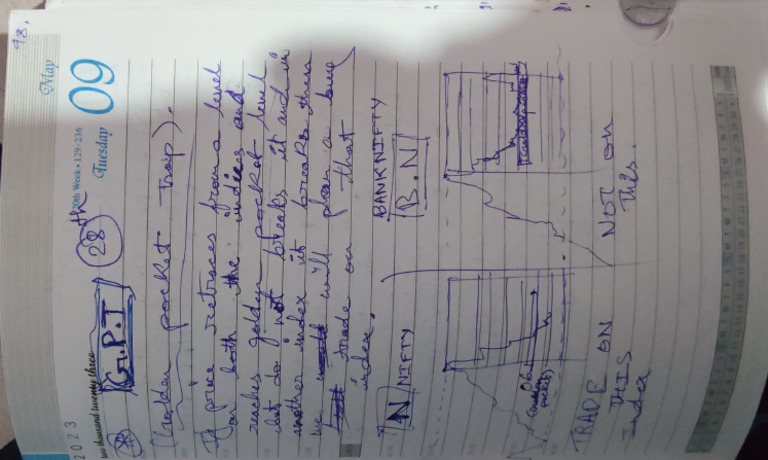 98.
2023
two thousand twenty three
May
09
Tuesday
20th Week • 129-236
G.P.T
28th
(Golden pocket Trap).
If price retraces from a level
on both the indices and
reaches golden pocket level
but do not breaks it and in
another index it breaks then
we will plan a buy
trade on that
index.
N NIFTY
BANKNIFTY
B.N
0.6
(Golden
pocket)
TRADE ON
THIS
Index
NOT on
This.